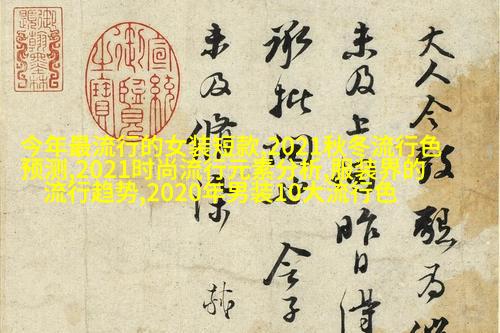 今年最流行的女装短款,2021秋冬流行色
预测,2021时尚流行元素分析,服装界的
流行趋势,2020年男装10大流行色
大人令致懇為
未及上昨日得
承批舍子
未及脩
軾
宣統御覽之寶